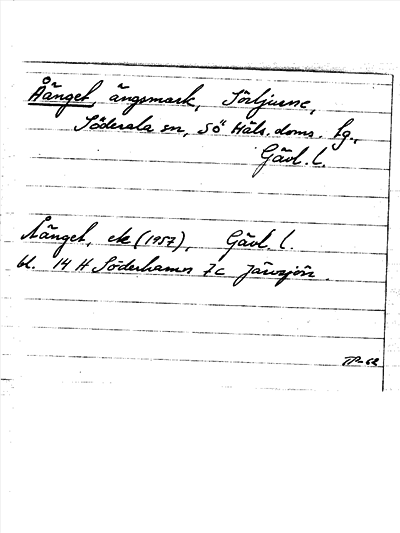 Åänget, ängsmark, Sörljusne,
Söderala sn, Sö Häls. doms. tg.,
Gävl. l.
Åänget, ek (1957), Gävl. l.
bl. 14 H Söderhamn 7c
TP-62